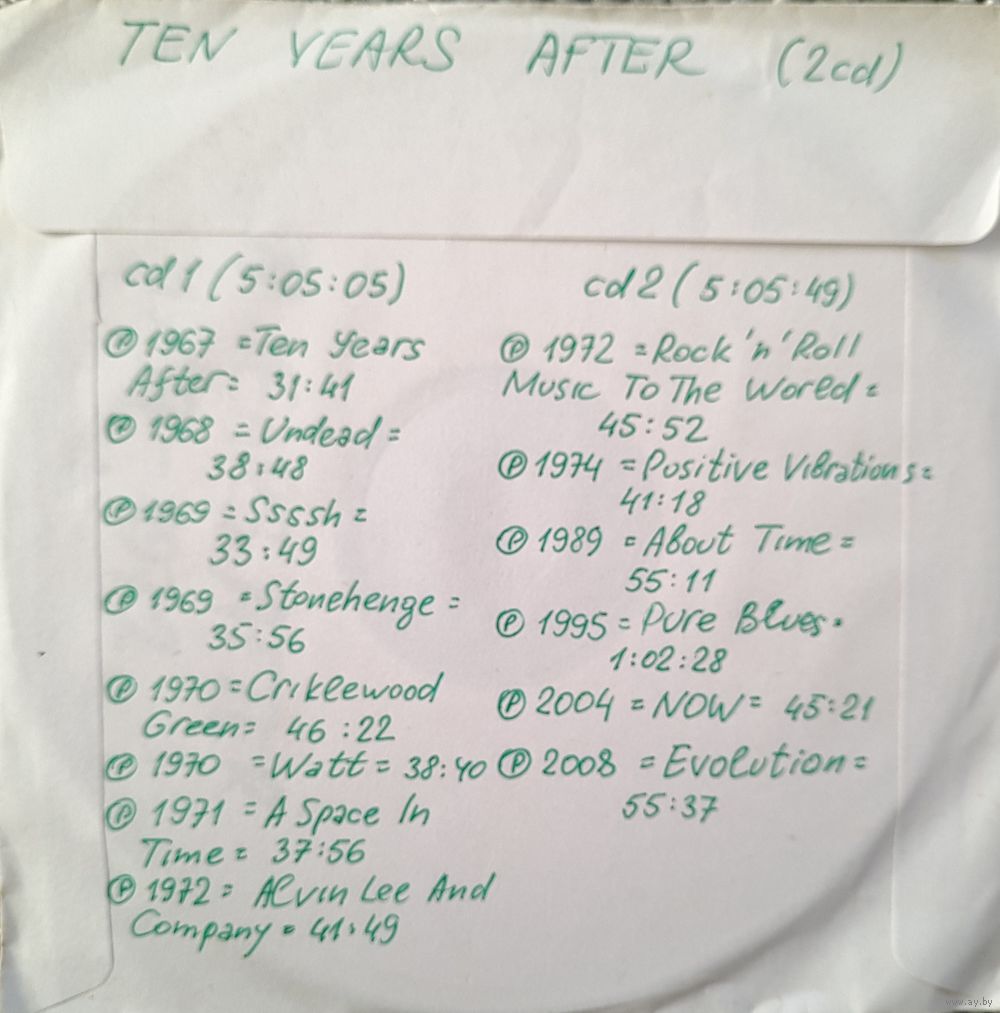 TEN YEARS AFTER (2cd)
cd1 (5:05:05)
Ⓟ 1967 =Ten Years
After= 31:41
Ⓟ 1968 =Undead=
38:48
Ⓟ 1969 =Ssssh=
33:49
Ⓟ 1969 =Stonehenge=
35:56
Ⓟ 1970 =Criklewood
Green= 46:22
Ⓟ 1970 =Watt= 38:40
Ⓟ 1971 =A Space In
Time= 37:56
Ⓟ 1972= Alvin Lee And
Company= 41:49
cd2 (5:05:49)
Ⓟ 1972 =Rock'n'Roll
Music To The Woreld=
45:52
Ⓟ 1974 =Positive Vibrations=
41:18
Ⓟ 1989 =About Time=
55:11
Ⓟ 1995 =Pure Blues=
1:02:28
Ⓟ 2004 =NOW= 45:21
Ⓟ 2008 =Evolution=
55:37
www.ay.by